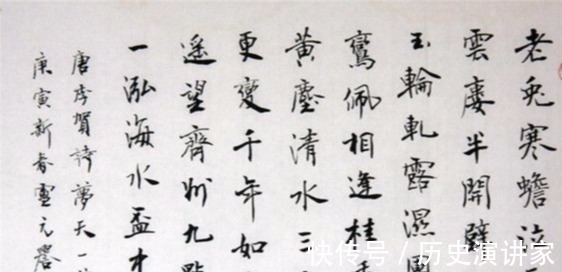 老兔寒蟾泣
雲廔半開壁
玉輪軋露濕團
鸞佩相逢桂
黃塵清水三
更變千年如
遥望齊州九點
一泓海水盃中
唐李賀詩夢天一
庚寅新春元
快传号 / 历史演讲家